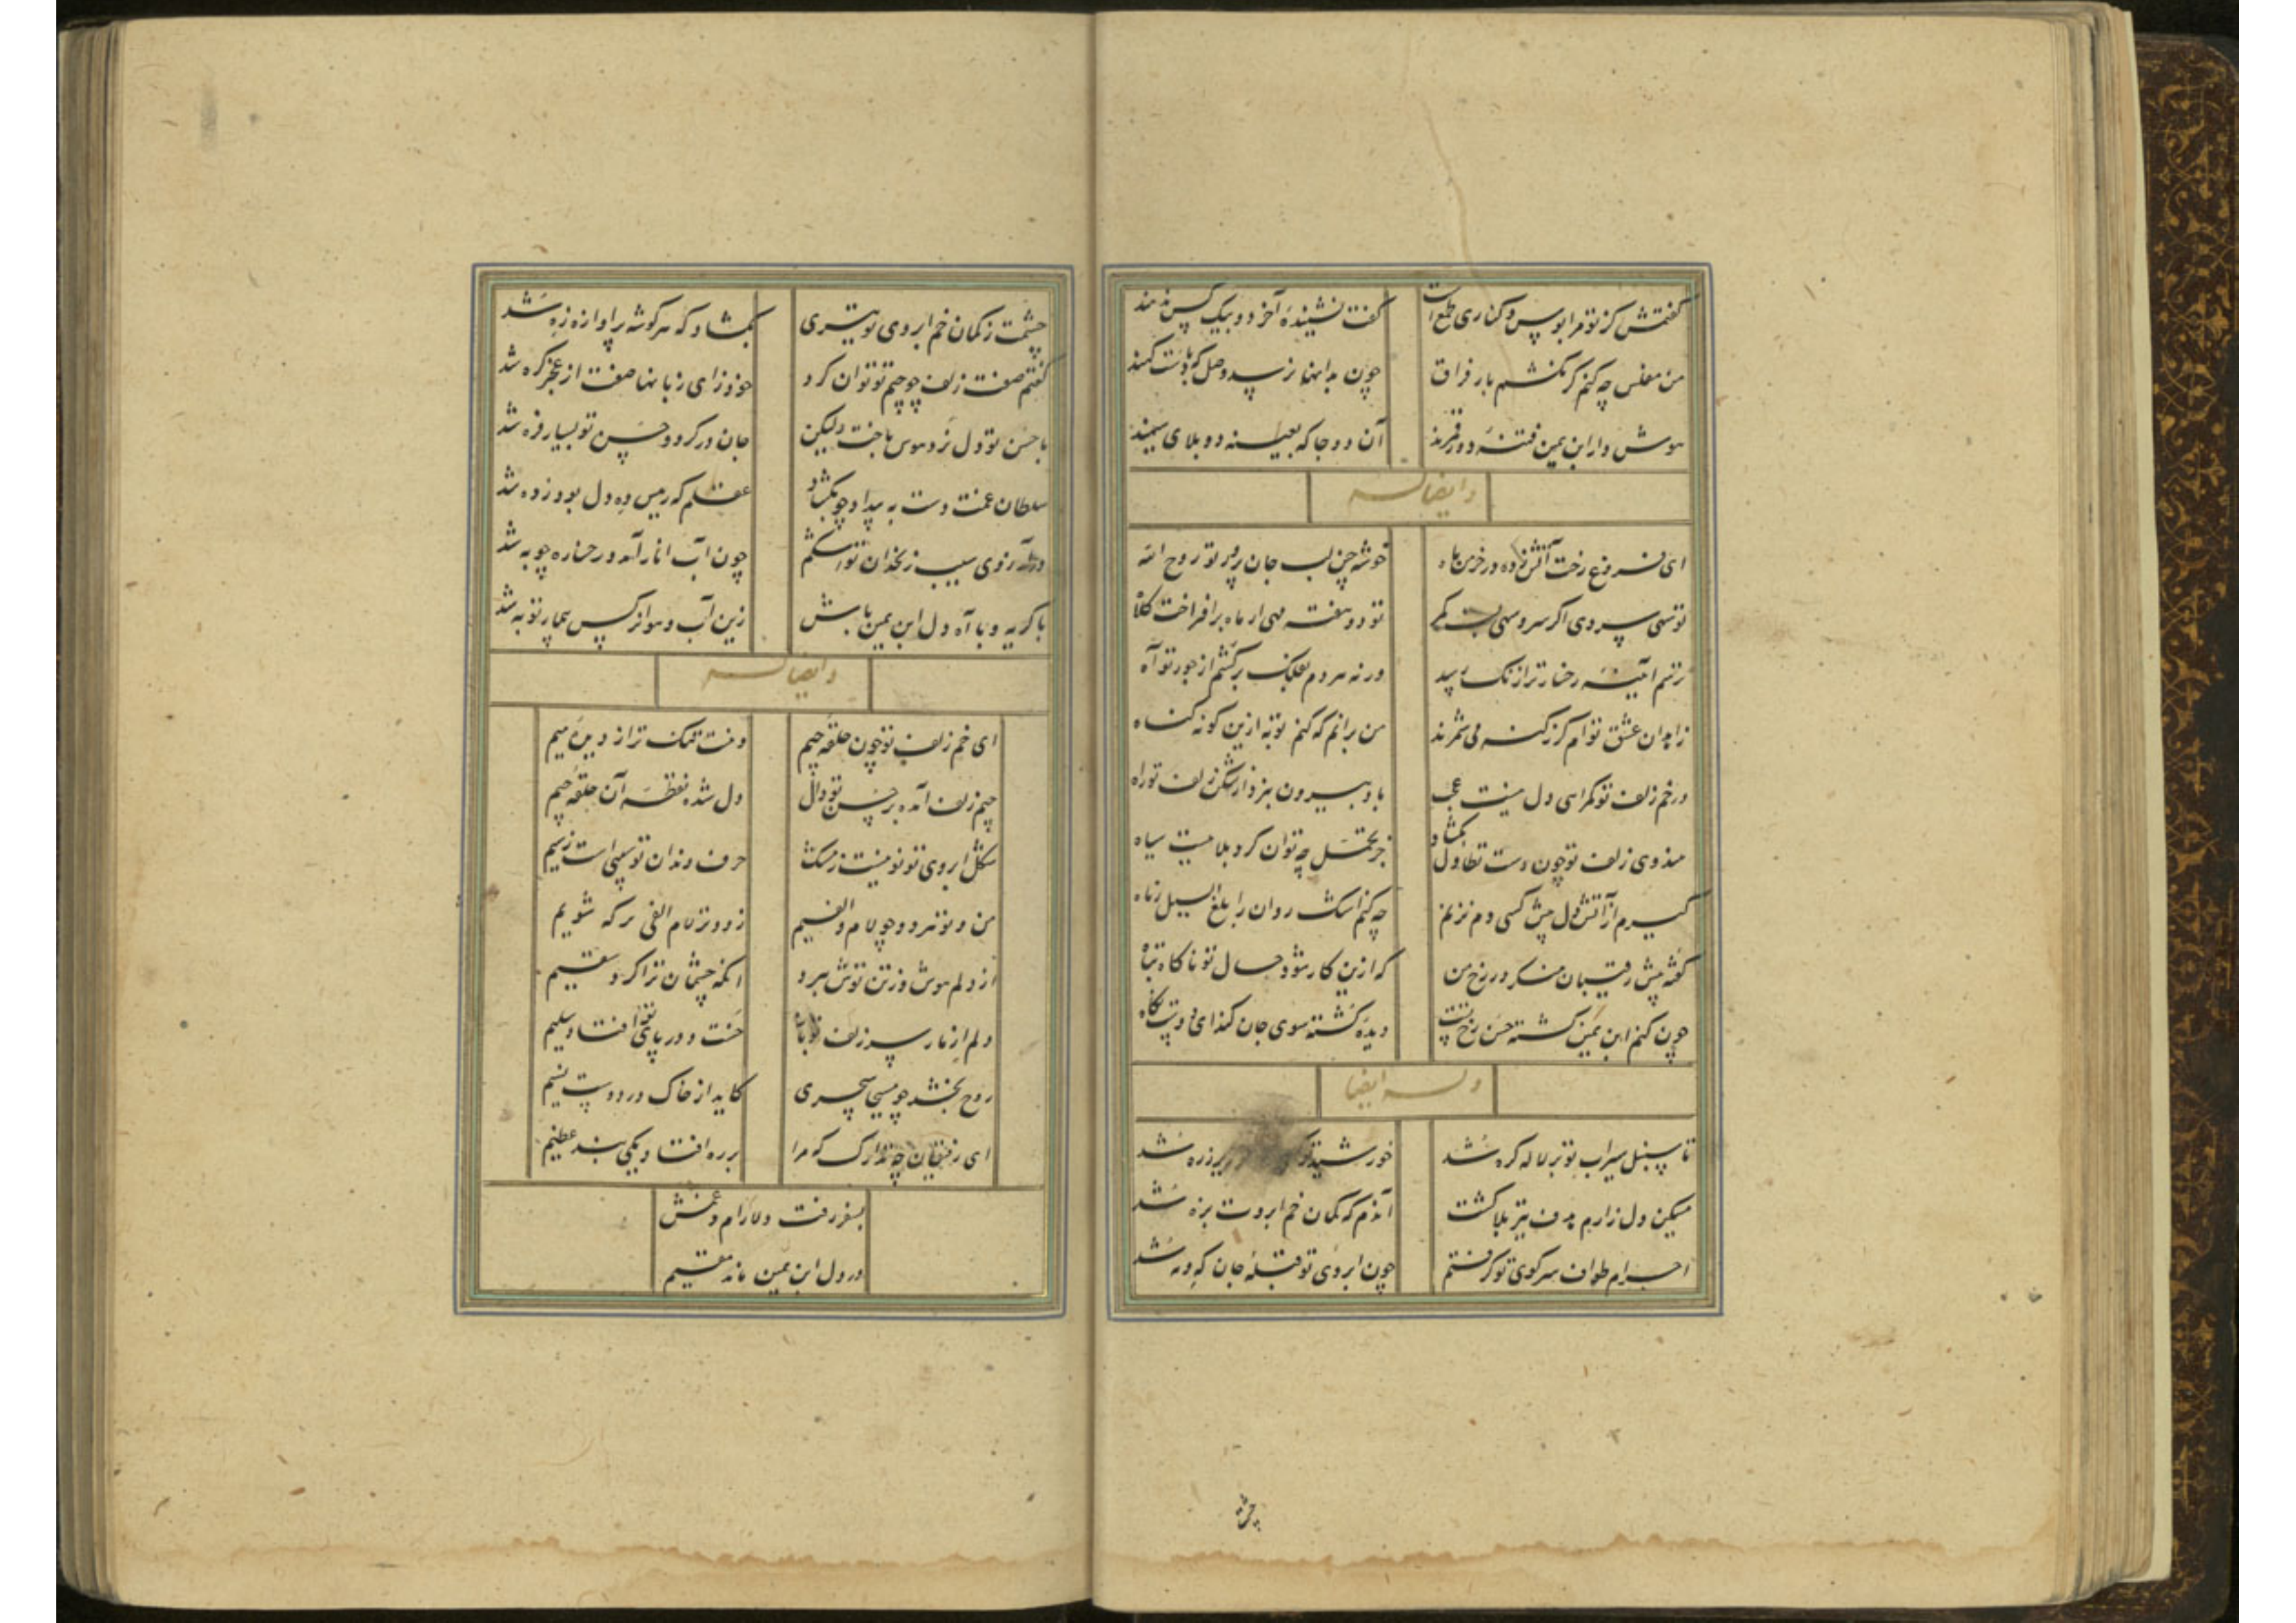 گفتمش کز تو مرا بوس و کناری طمع است
گفت ننشیندهٔ آخر دو بیک کس ندهند
من مفلس چه کنم گر نکشم بار فراق
چون بداینها نرسد وصل کند
هوش دار ابن یمین فتنهٔ دور قمرند
آن دو جا که بعینه دو بلای سیهند
و ایضا له
ای فروغ رخت آتش زده در خرمن ماه
خوشه چین لب جان پرور تو روح الله
تو سهی سروی اگر سرو سهی بست کمر
تو دو هفته مهی ار ماه برافراخت کلاه
ترسم آیینه رخسار ترا زنگ رسد
ورنه هر دم بفلک برکشم از جور تو آه
زاهدان عشق توام گر ز گنه می شمرند
من برانم که کنم توبه ازین گونه گناه
در خم زلف تو گمراهی دل نیست عجب
باد بیرون نبرد از شکن زلف تو راه
هندوی زلف تو چون دست تطاول بگشاد
جز تحمل چه توان کرد بلاییست سیاه
گیرم از آتش دل پیش کسی دم نزنم
چه کنم اشک روان را بلغ السیل زباه
گفته پیش رقیبان منگر در رخ من
که ازین کار شود حال تو ناگاه تباه
چون کنم ابن یمین کشته حسن رخ تست
دیده گشته سوی جان کند ای دوست نگاه
وله ایضا
تا سنبل سیراب تو بر لاله گره شد
خورشید تو زره شد
مسکین دل زارم هدف تیر بلا گشت
آندم که کمان خم ابروت بزه شد
احرام طواف سر کوی تو گرفتم
چون ابروی تو قبلهٔ جان که و مه شد
چشمت
چشمت ز کمان خم ابروی تو تیری
بگشاد که هر گوشه پر آوازه زه شد
گفتم صفت زلف چو جیم تو توان کرد
خود زای زبانها صفت از عجز گره شد
با حسن تو دل نرد هوس باخت ولیکن
جان در گرو و حسن تو بسیار فره شد
سلطان غمت دست به بیداد چو بگشاد
عقلم که رییس ده دل بود ز ده شد
در آرزوی سیب زنخدان تو اشکم
چون آب انار آمد و رخساره چو به شد
با گریه و با آه دل ابن یمین باش
زین آب و هوا نرگس بیمار تو به شد
و ایضا له
ای خم زلف تو چون حلقه جیم
دهنت تنگ تر از دیدهٔ میم
جیم زلف آمده بر حسن تو دال
دل شده نقطهٔ آن حلقه جیم
شکل ابروی تو نونیست ز مشک
حرف دندان تو سینی است ز سیم
من و تو هر دو چو لام و الفیم
زود تر لام الفی بر که شویم
از دلم هوش و ز تن توش ببرد
آنکه چشمان ترا کرد سقیم
دلم از بار سر زلف تو باز
خست و در پای تو افتاد سلیم
روح بخشد چو مسیحا سحری
کاید از خاک در دوست نسیم
ای رفیقان چه تدارک که مرا
بر ره افتاد یکی بند عظیم
بسفر رفت دلارام و غمش
در دل ابن یمین ماند مقیم